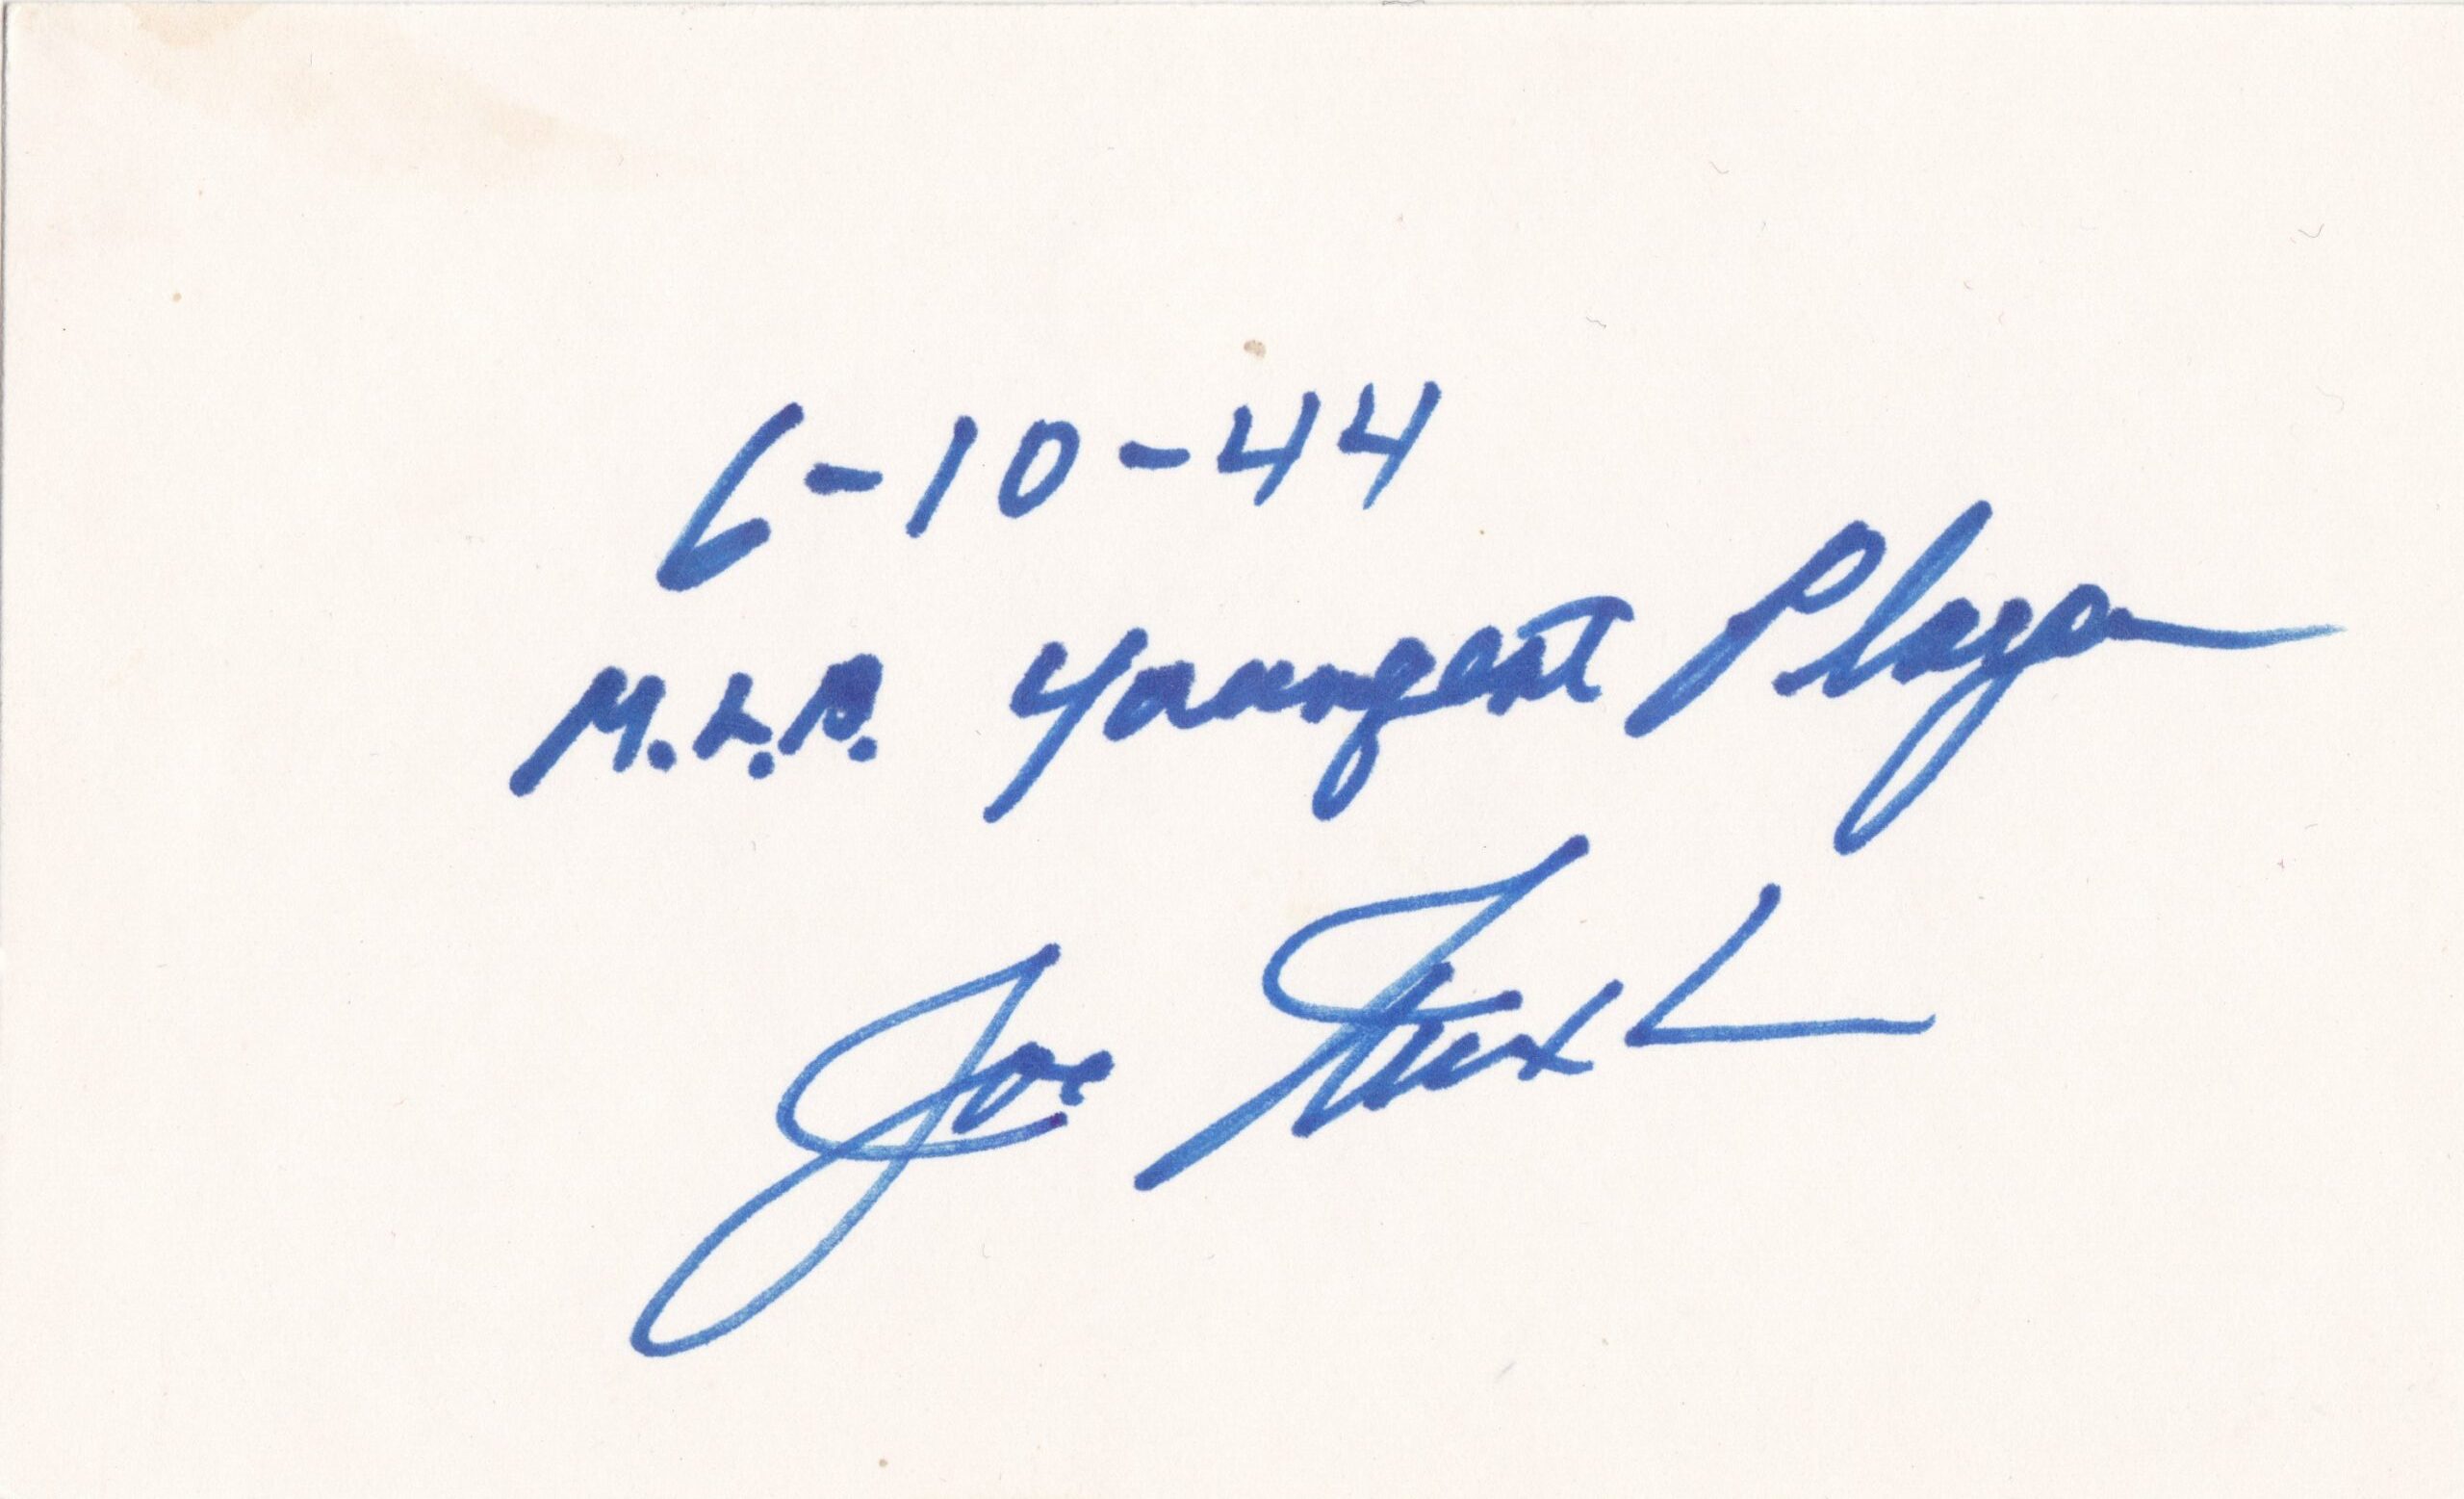 6-10-44
M.L.B. Youngest Player
Joe Nuxhall